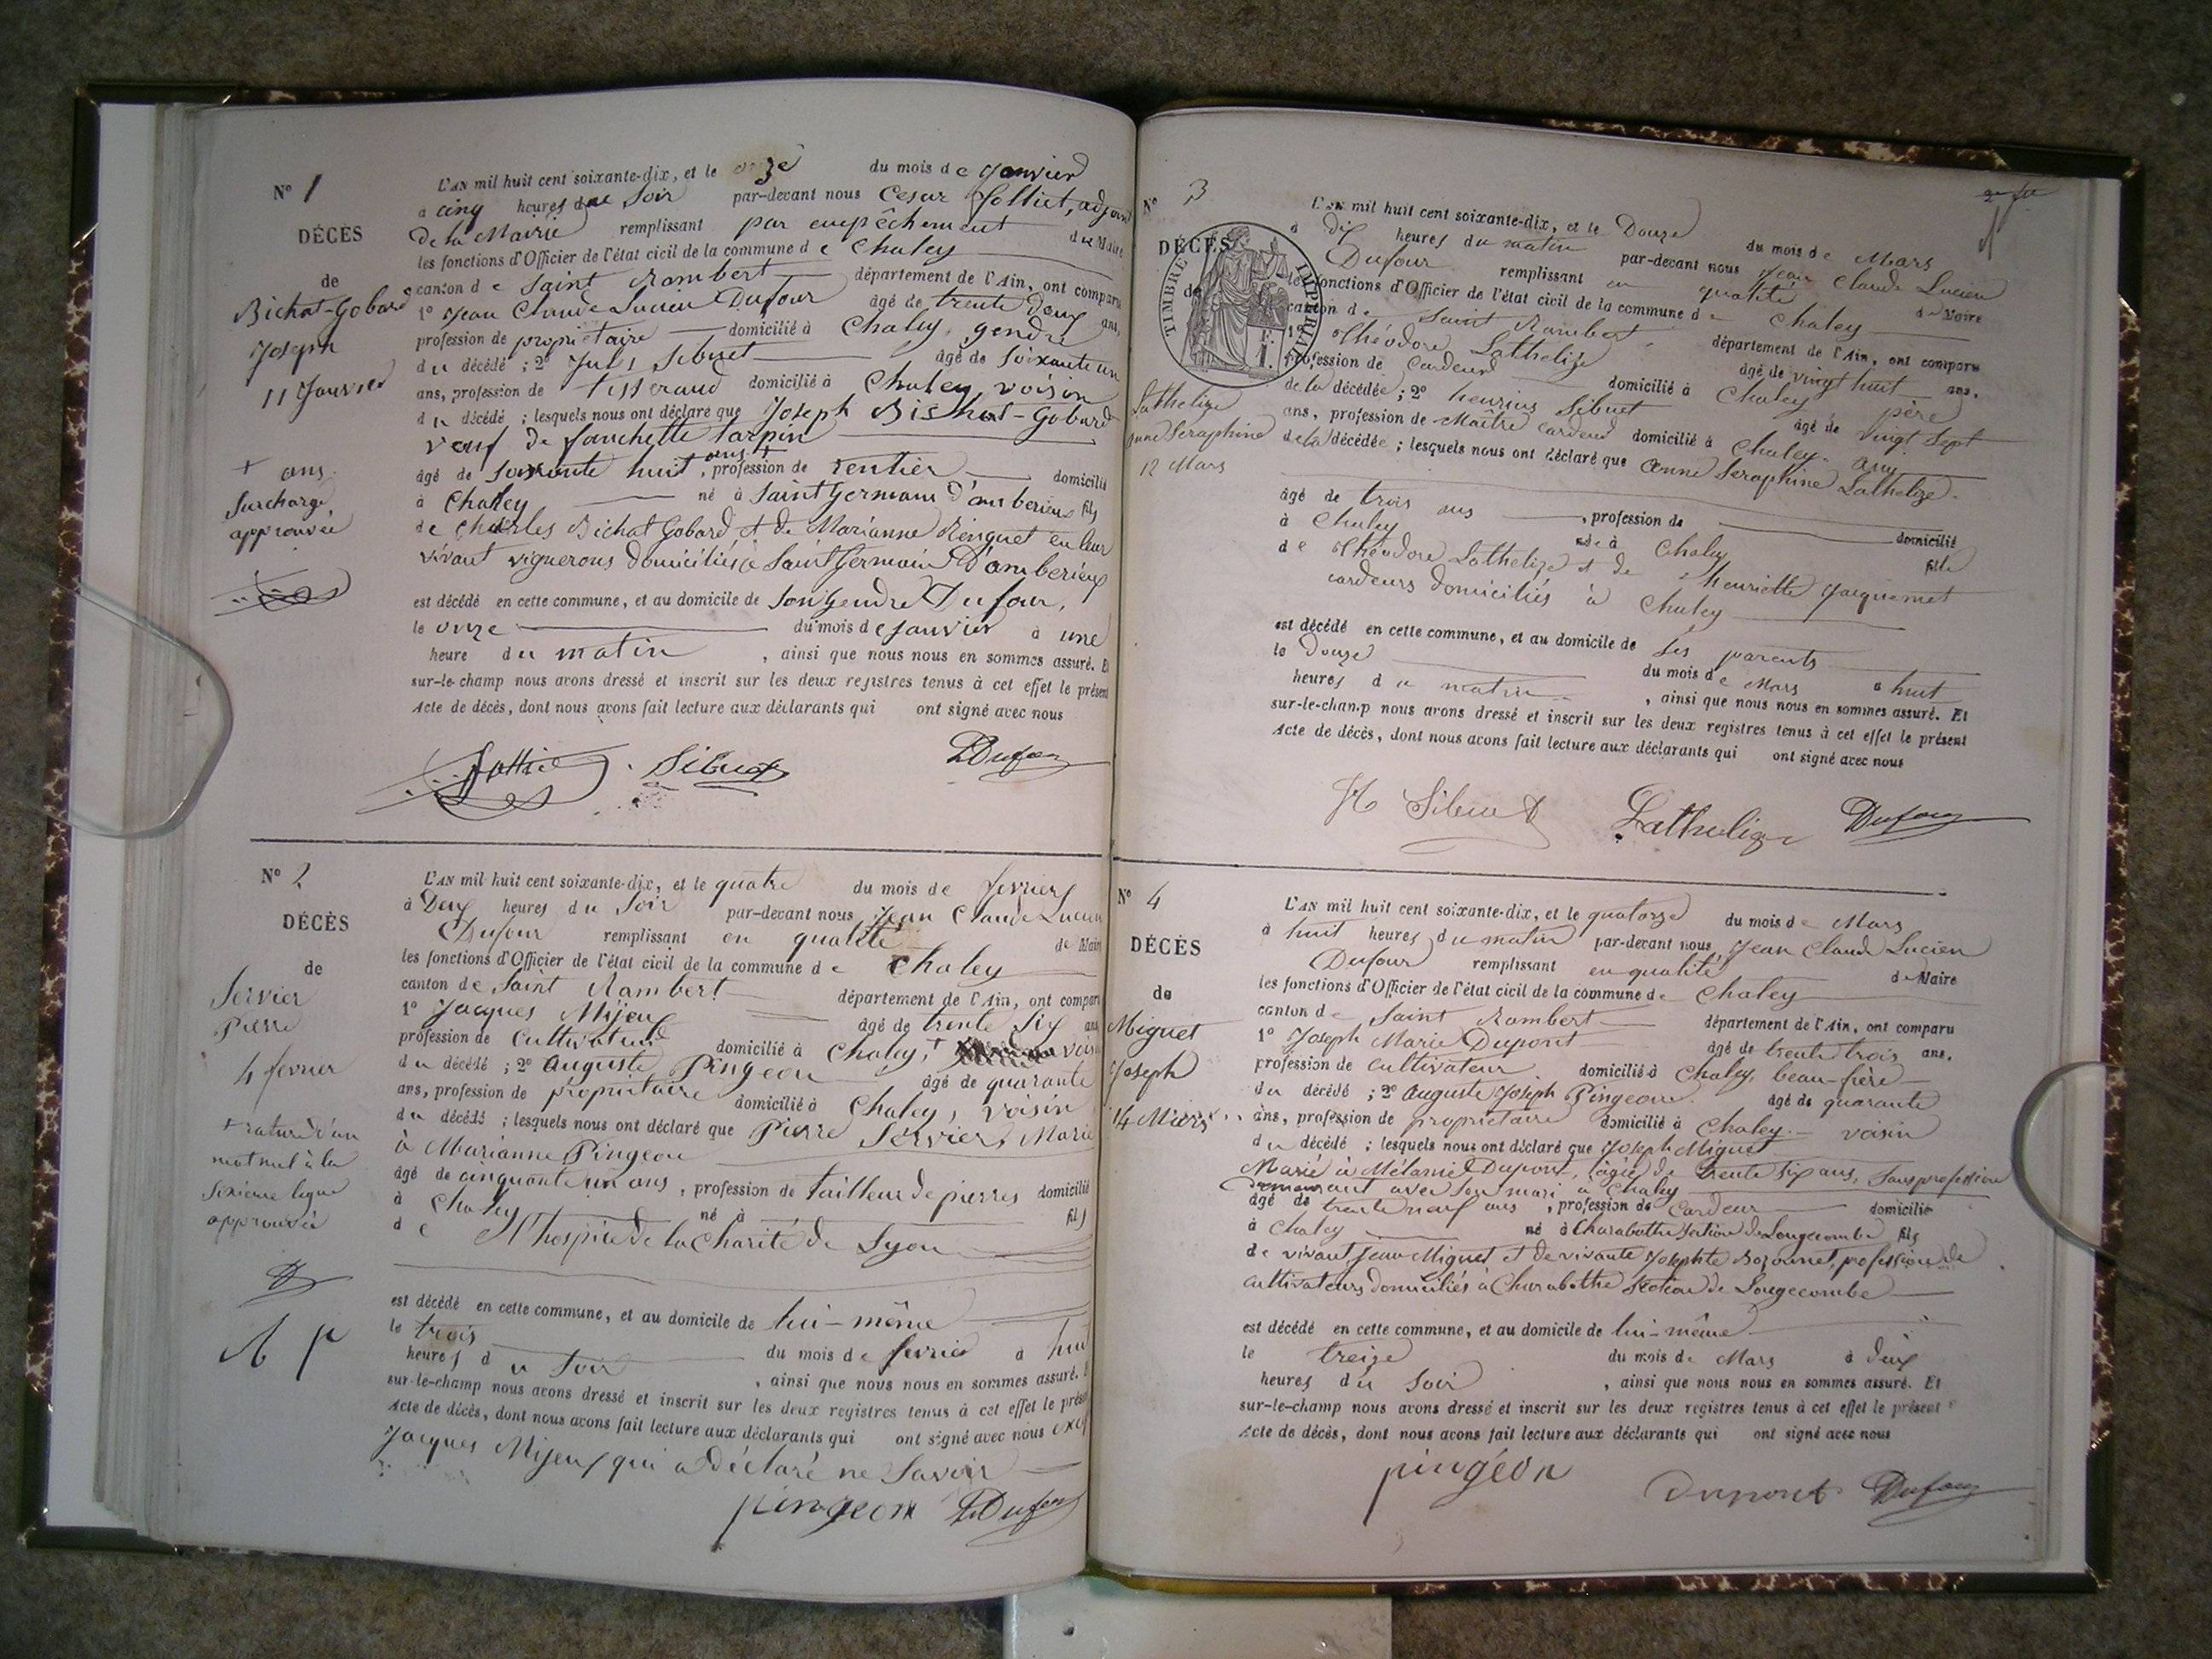 N° 1
DÉCÈS
de
Bichat-Gobard
Joseph
11 Janvier
+ ans
Surcharge
approuvée
L'AN mil huit cent soixante-dix, et le onze du mois de Janvier
à cinq heures du soir par-devant nous Cesar Folliet, adjoint
De la Mairie remplissant par empêchement du Maire
les fonctions d'Officier de l'état civil de la commune de Chaley
canton de Saint Rambert département de l'Ain, ont comparu
1° Jean Claude Lucien Dufour âgé de trente deux ans,
profession de propriétaire domicilié à Chaley, gendre
du décédé ; 2° Jules Sibuet âgé de soixante un
ans, profession de tisserand domicilié à Chaley, voisin
du décédé ; lesquels nous ont déclaré que Joseph Bichat-Gobard
veuf de fanchette tarpin
âgé de soixante huit ans +, profession de rentier domicilié
à Chaley né à Saint Germain d'amberieux fils
de Charles Bichat Gobard et de Marianne Ringuet en leur
vivant vignerons domiciliés à Saint Germain D'amberieux
est décédé en cette commune, et au domicile de son gendre Dufour,
le onze du mois de Janvier à une
heure du matin, ainsi que nous nous en sommes assuré. Et
sur-le-champ nous avons dressé et inscrit sur les deux registres tenus à cet effet le présent
Acte de décès, dont nous avons fait lecture aux déclarants qui ont signé avec nous
Sibuet LDufour
N° 2
DÉCÈS
de
Servier
Pierre
4 fevrier
+ rature d'un
mot nul à la
sixième ligne
approuvée
L'AN mil huit cent soixante-dix, et le quatre du mois de fevrier
à Deux heures du Soir par-devant nous Jean Claude Lucien
Dufour remplissant en qualité de Maire
les fonctions d'Officier de l'état civil de la commune de Chaley
canton de Saint Rambert département de l'Ain, ont comparu
1° Jacques Mijeux âgé de trente six ans
profession de Cultivateur domicilié à Chaley, + voisin
du décédé ; 2° Auguste Pingeon âgé de quarante
ans, profession de propriétaire domicilié à Chaley, voisin
du décédé ; lesquels nous ont déclaré que Pierre Servier, Marié
à Marianne Pingeon
âgé de cinquante un ans, profession de tailleur de pierres domicilié
à Chaley né à fils
de l'hospice de la Charité de Lyon
est décédé en cette commune, et au domicile de lui-même
le trois du mois de fevrier à huit
heures du soir, ainsi que nous nous en sommes assuré. E
sur-le-champ nous avons dressé et inscrit sur les deux registres tenus à cet effet le présent
Acte de décès, dont nous avons fait lecture aux déclarants qui ont signé avec nous
Jacques Mijeux qui a Déclaré ne Savoir
pingeon LDufour
N° 3
DÉCÈS
de
TIMBRE IMPÉRIAL
Lathelize
anne Seraphine
12 Mars
L'AN mil huit cent soixante-dix, et le Douze du mois de Mars
à dix heures du matin par-devant nous Jean Claude Lucien
Dufour remplissant en qualité de Maire
les fonctions d'Officier de l'état civil de la commune de Chaley
canton de Saint Rambert département de l'Ain, ont comparu
1° Théodore Lathelize âgé de vingt huit ans,
profession de Cardeur domicilié à Chaley père
de la décédée ; 2° henrius Sibuet âgé de vingt sept
ans, profession de Maître cardeur domicilié à Chaley. ami
de la décédée ; lesquels nous ont déclaré que anne Seraphine Lathelize.
âgé de trois ans, profession de domicilié
à Chaley née à Chaley fille
de Théodore Lathelize et de henriette Jacquemet
cardeurs domiciliés à Chaley
est décédé en cette commune, et au domicile de ses parents
le douze du mois de Mars à huit
heures du matin, ainsi que nous nous en sommes assuré. Et
sur-le-champ nous avons dressé et inscrit sur les deux registres tenus à cet effet le présent
Acte de décès, dont nous avons fait lecture aux déclarants qui ont signé avec nous
H Sibuet Lathulize Dufour
N° 4
DÉCÈS
de
Miguet
Joseph
14 Mars
L'AN mil huit cent soixante-dix, et le quatorze du mois de Mars
à huit heures du matin par-devant nous Jean Claude Lucien
Dufour remplissant en qualité de Maire
les fonctions d'Officier de l'état civil de la commune de Chaley
canton de Saint Rambert département de l'Ain, ont comparu
1° Joseph Marie Dupont âgé de trente trois ans.
profession de cultivateur domicilié à Chaley, beau-frère
du décédé ; 2° Auguste Joseph Pingeon âgé de quarante
ans, profession de propriétaire domicilié à Chaley. voisin
du décédé ; lesquels nous ont déclaré que Joseph Miguet
Marié à Mélanie Dupont, âgée de trente six ans, sans profession
demeurant avec son mari à Chaley
âgé de trente neuf ans, profession de Cardeur domicilié
à Chaley né à Charabotte section de Longecombe fils
de vivant Jean Miguet et de vivante Josephte Bozonnet, profession de
cultivateurs domiciliés à Charabotte section de Longecombe
est décédé en cette commune, et au domicile de lui-même
le treize du mois de Mars à deux
heures du Soir, ainsi que nous nous en sommes assuré. Et
sur-le-champ nous avons dressé et inscrit sur les deux registres tenus à cet effet le présent
Acte de décès, dont nous avons fait lecture aux déclarants qui ont signé avec nous
pingéon Dupont Dufour